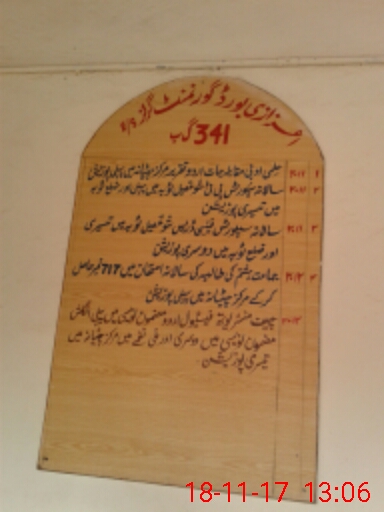 اعزازی بورڈ گورنمنٹ گرلز
341 گ ب
۱ ۲۰۱۱ علمی ادبی مقابلہ جات اردو تقریر مرکز چٹیانہ میں پہلی پوزیشن
۲ ۲۰۱۱ سالانہ سپورٹس پی ٹی شو تحصیل ٹوبہ میں پہلی اور ضلع ٹوبہ
میں تیسری پوزیشن
۳ ۲۰۱۱ سالانہ سپورٹس فینسی ڈریس شو تحصیل ٹوبہ میں تیسری
اور ضلع ٹوبہ میں دوسری پوزیشن
۴ ۲۰۱۲ جماعت ہشتم کی طالبہ کی سالانہ امتحان میں 717 نمبر حاصل
کر کے مرکز چٹیانہ میں پہلی پوزیشن
۲۰۱۲ چیف منسٹر یوتھ فیسٹیول اردو مضمون نویسی میں پہلی انگلش
مضمون نویسی میں دوسری اور ملی نغمے میں مرکز چٹیانہ میں
تیسری پوزیشن
18-11-17 13:06